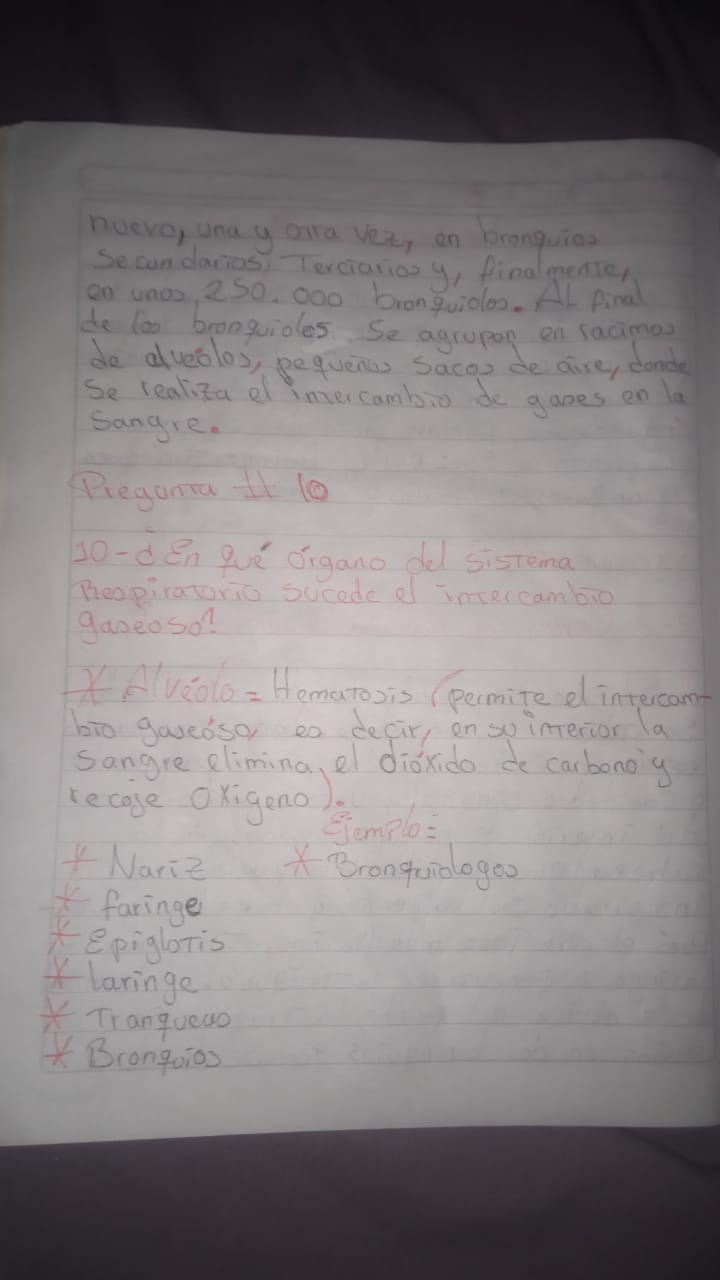 nuevo, una y otra vez, en bronquios
Secundarios, Terciarios y, finalmente,
en unos, 250.000 bronquiolos. Al final
de los bronquioles Se agrupan en racimos
de alveólos, pequeños Sacos de aire, donde
Se realiza el intercambio de gases en la
Sangre.
Pregunta # 10
10-¿En qué órgano del Sistema
Respiratorio sucede el intercambio
gaseoso?
* Alvéolo = Hematosis (permite el intercam-
bio gaseóso, es decir, en su interior la
Sangre elimina, el dióxido de carbono y
recoje Oxigeno).
Ejemplo:
* Nariz * Bronquiologos
* faringe
* Epiglotis
* Laringe
* Tranqueas
* Bronquios